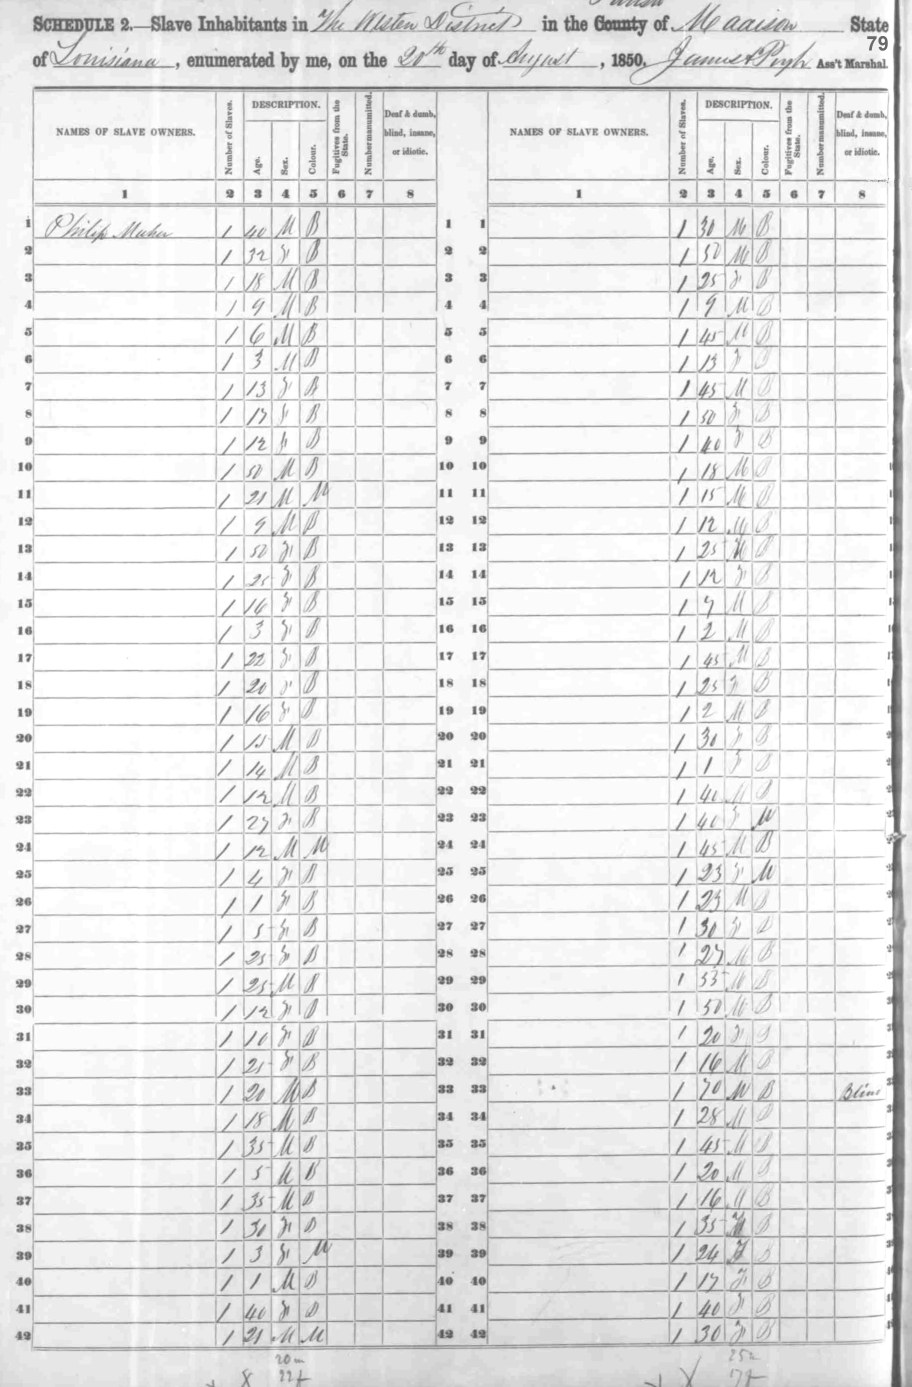 Parish
SCHEDULE 2.—Slave Inhabitants in The Western District in the County of Madison State
79
of Louisiana, enumerated by me, on the 20th day of August, 1850. James Pugh Ass't Marshal.
NAMES OF SLAVE OWNERS. Number of Slaves. DESCRIPTION. Age. Sex. Colour. Fugitives from the State. Number manumitted. Deaf & dumb, blind, insane, or idiotic. NAMES OF SLAVE OWNERS. Number of Slaves. DESCRIPTION. Age. Sex. Colour. Fugitives from the State. Number manumitted. Deaf & dumb, blind, insane, or idiotic.
1 2 3 4 5 6 7 8 1 2 3 4 5 6 7 8
1 Philip 1 40 M B 1 1 1 30 M B
2 1 32 F B 2 2 1 50 M B
3 1 18 M B 3 3 1 25 F B
4 1 9 M B 4 4 1 9 M B
5 1 6 M B 5 5 1 45 M B
6 1 3 M B 6 6 1 13 F B
7 1 13 F B 7 7 1 45 M B
8 1 17 F B 8 8 1 50 F B
9 1 12 F B 9 9 1 40 F B
10 1 50 M B 10 10 1 18 M B
11 1 21 M M 11 11 1 15 M B
12 1 9 M B 12 12 1 12 M B
13 1 50 F B 13 13 1 25 B
14 1 25 F B 14 14 1 12 F B
15 1 16 F B 15 15 1 7 M B
16 1 3 F B 16 16 1 2 M B
17 1 22 F B 17 17 1 45 M B
18 1 20 F B 18 18 1 25 F B
19 1 16 F B 19 19 1 2 M B
20 1 15 M B 20 20 1 30 F B
21 1 14 M B 21 21 1 1 F B
22 1 12 M B 22 22 1 40 M B
23 1 27 F B 23 23 1 40 F M
24 1 12 M M 24 24 1 45 M B
25 1 4 F B 25 25 1 23 F M
26 1 1 F B 26 26 1 23 M B
27 1 5 F B 27 27 1 30 F B
28 1 25 F B 28 28 1 27 M B
29 1 25 M B 29 29 1 M B
30 1 12 F B 30 30 1 50 M B
31 1 10 F B 31 31 1 20 F B
32 1 25 F B 32 32 1 16 M B
33 1 20 M B 33 33 1 70 M B Blind
34 1 18 M B 34 34 1 28 M B
35 1 35 M B 35 35 1 45 M B
36 1 5 M B 36 36 1 20 M B
37 1 35 M B 37 37 1 16 M B
38 1 30 F B 38 38 1 35 F B
39 1 3 F M 39 39 1 24 F B
40 1 1 M B 40 40 1 17 F B
41 1 40 F B 41 41 1 40 F B
42 1 21 M M 42 42 1 30 F B
20 m 25 m
22 f 17 f